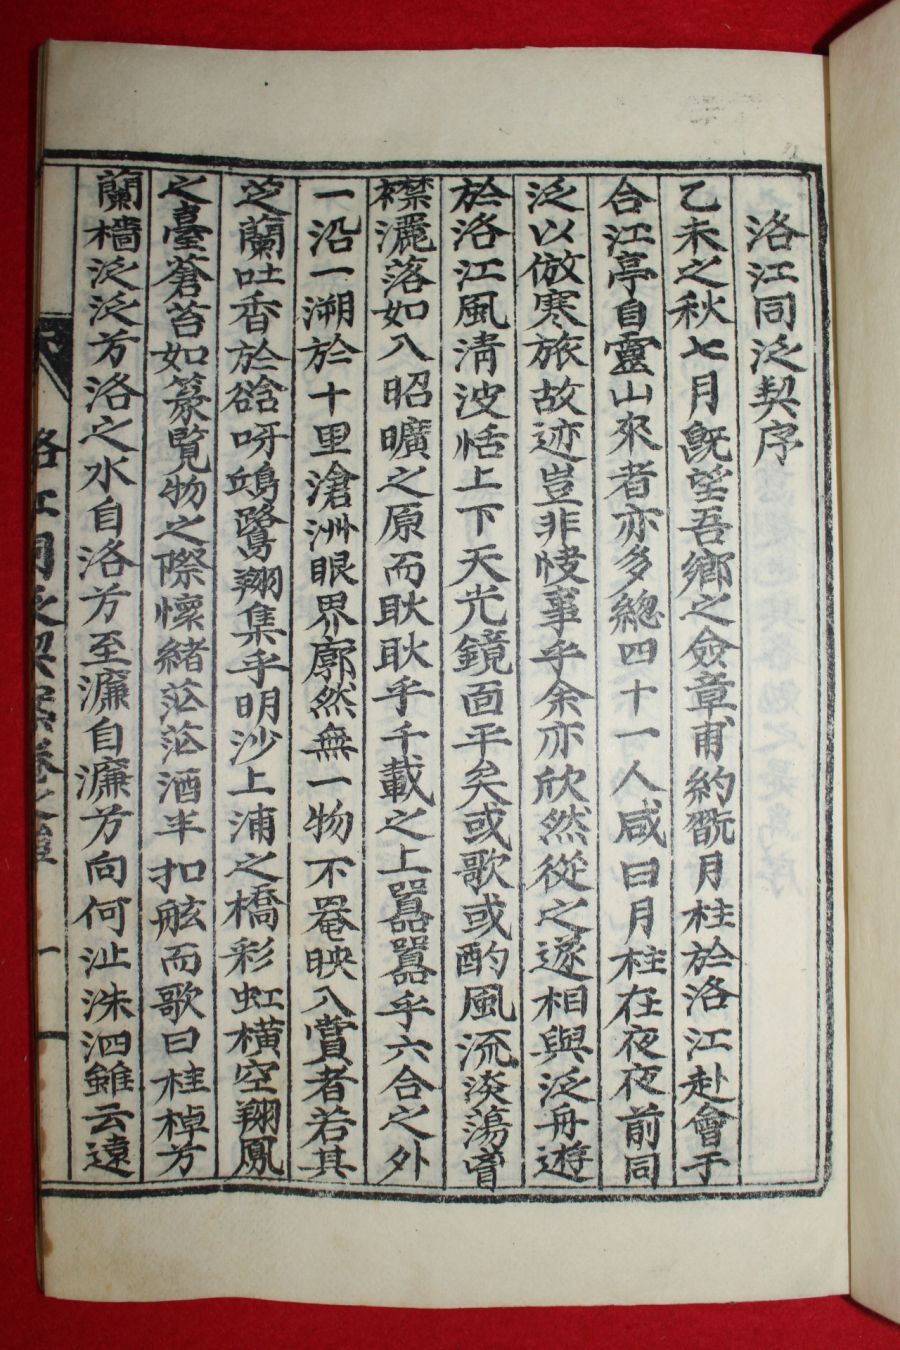 洛江同泛契序
乙未之秋七月旣望吾鄉之僉章甫約翫月柱於洛江赴會于
合江亭自靈山來者亦多總四十一人咸曰月柱在夜夜前同
泛以倣寒旅故迹豈非悽事乎余亦欣然從之遂相與泛舟遊
於洛江風淸波恬上下天光鏡面平矣或歌或酌風流淡蕩胷
襟灑落如入昭曠之原而耿耿乎千載之上囂囂乎六合之外
一沿一溯於十里滄洲眼界廓然無一物不罨映入賞者若其
芝蘭吐香於谽呀鴂鷺翔集乎明沙上浦之橋彩虹橫空翔鳳
之臺蒼苔如篆覽物之際懷緖茫茫酒半扣舷而歌曰桂棹兮
蘭檣泛泛兮洛之水自洛兮至濂自濂兮向何沚洙泗雖云遠
洛江同泛契案卷之 一